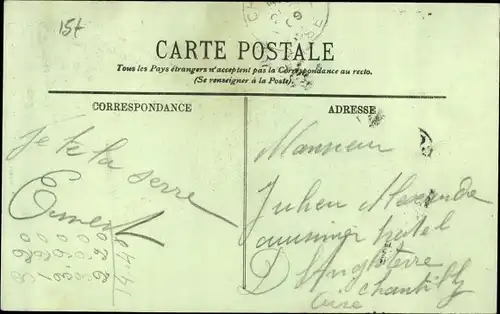 15t
CARTE POSTALE
Tous les Pays étrangers n'acceptent pas la Correspondance au recto.
(Se renseigner à la Poste).
CORRESPONDANCE
ADRESSE
Je te la serre
Ernest
Monsieur
Julien Alexandre
cuisinier hotel
D'Angleterre
Chantilly
Oise